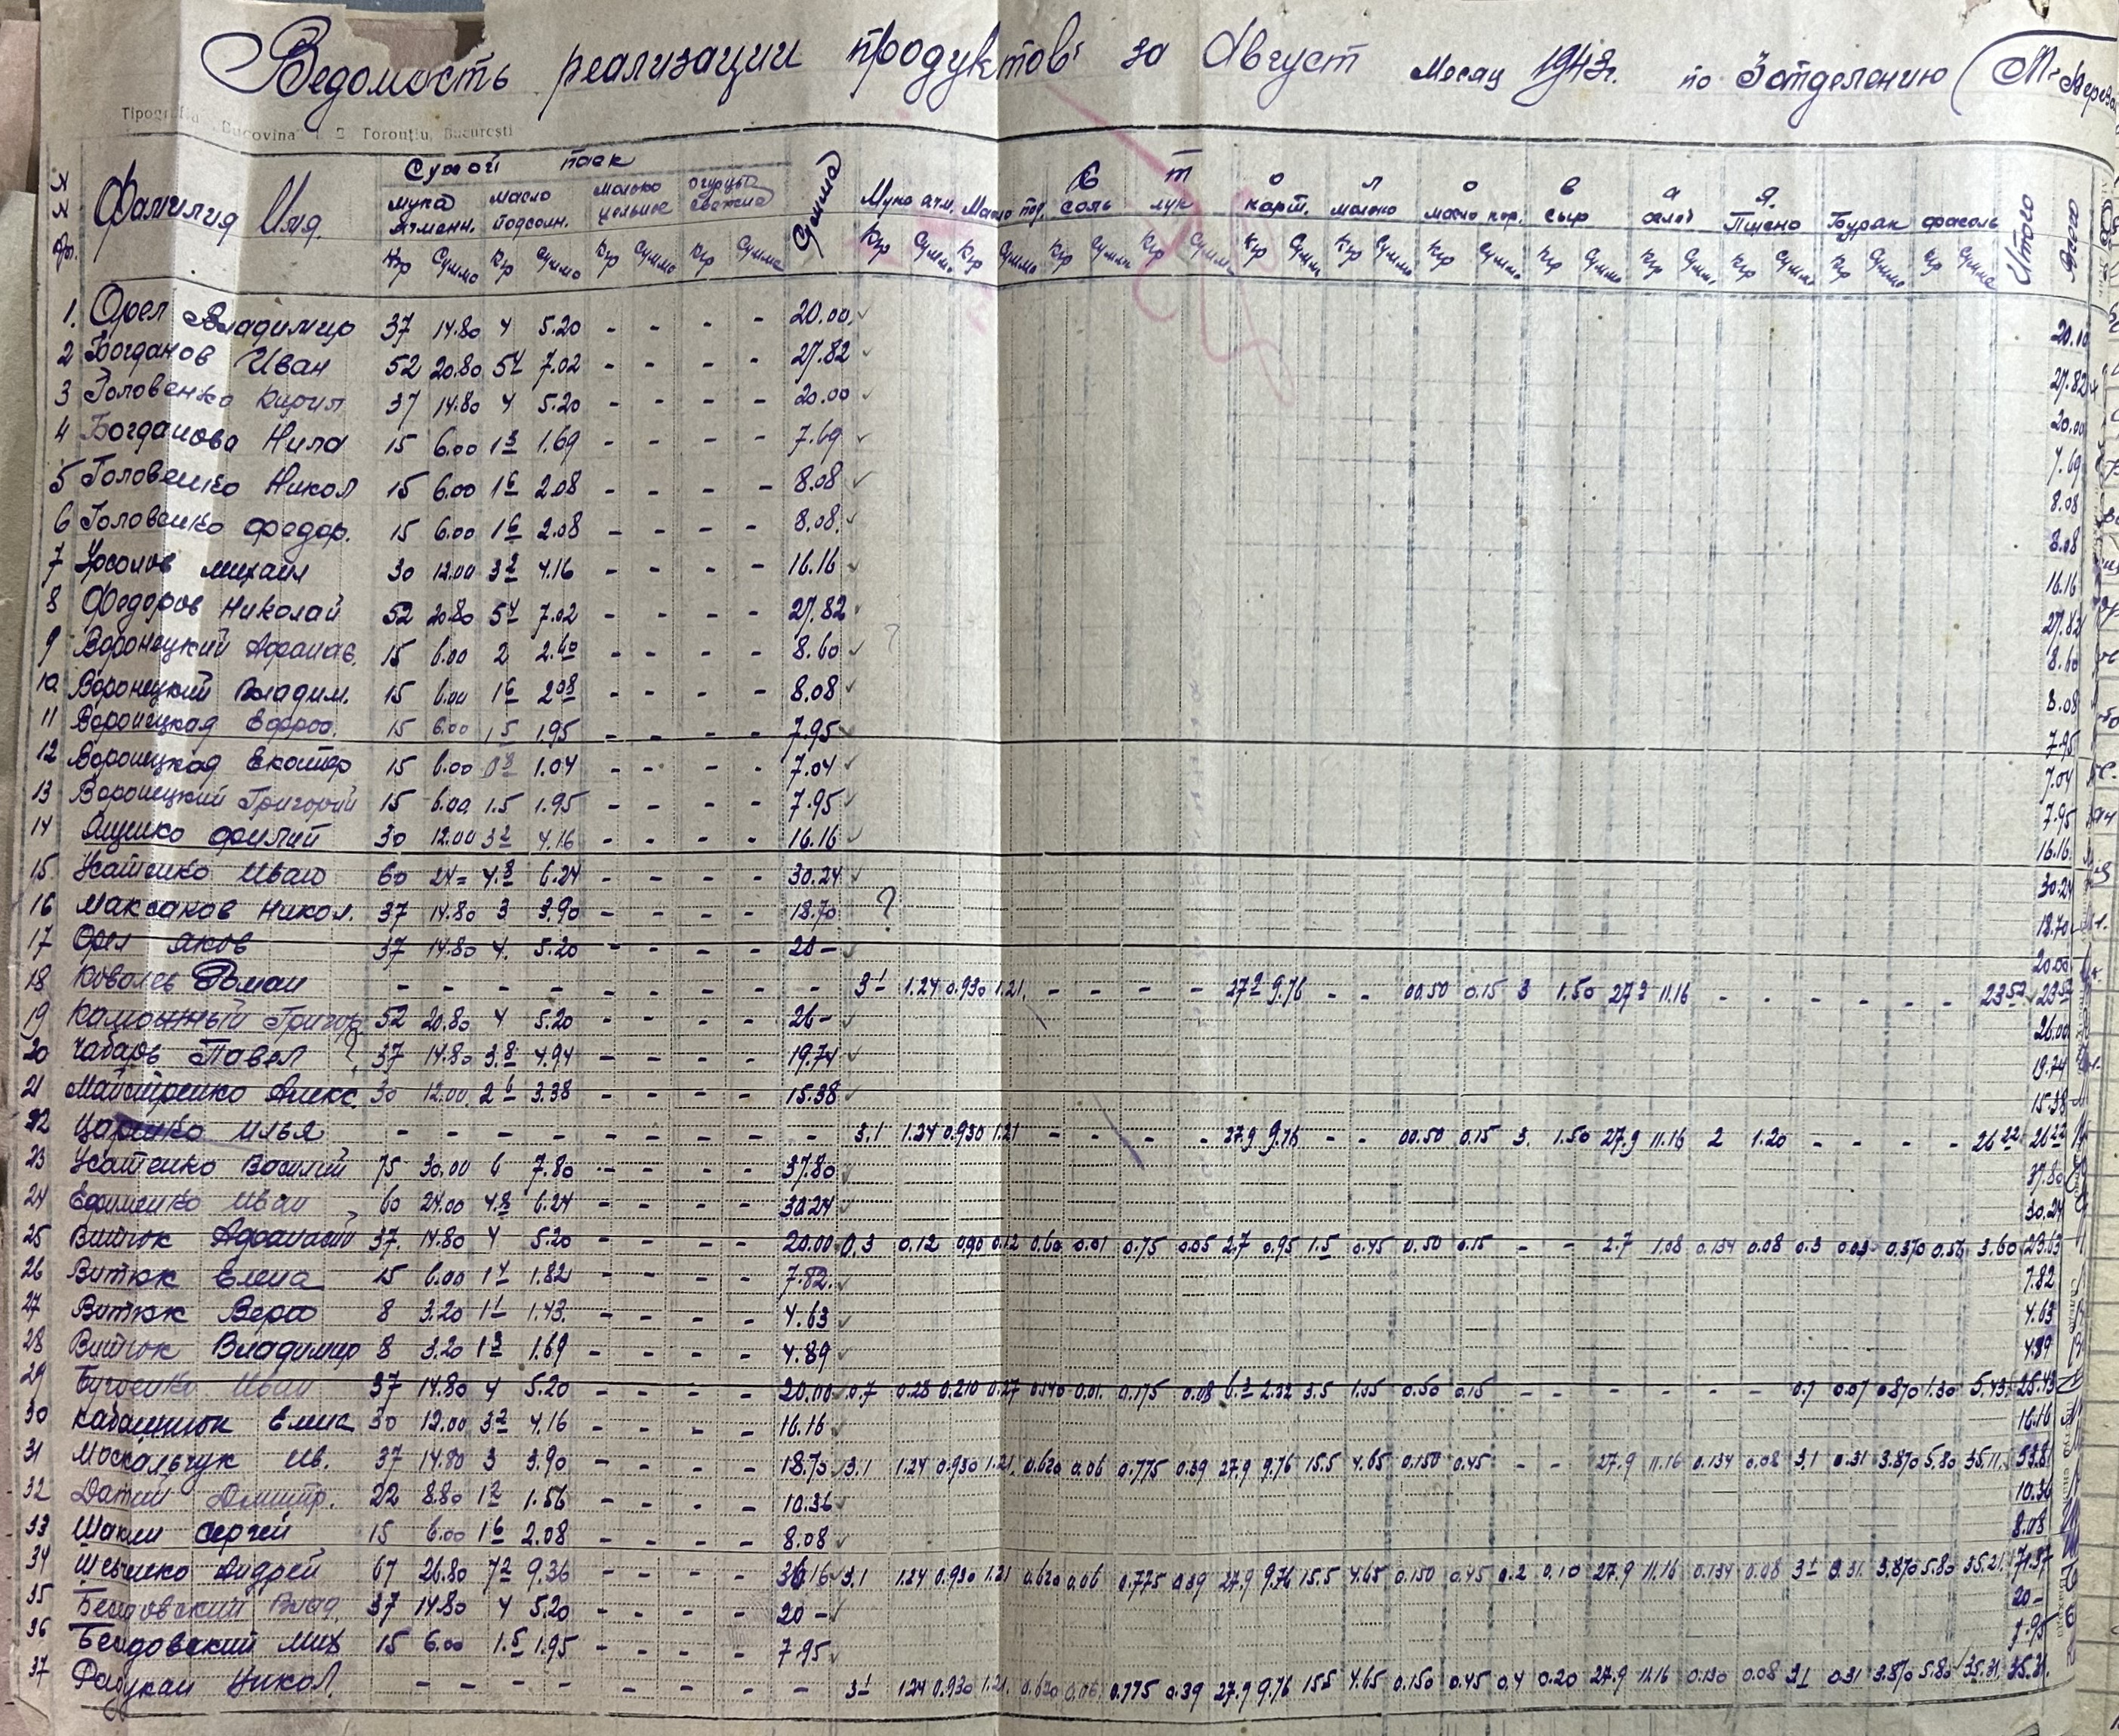 Ведомость реализации продуктов за Август месяц 1943г. по 3 отделению
Tipografia „Bucovina" I. E. Toronțiu, București
Фамилия Имя. Сухой паек Сумма С т о л о в а я. Итого Всего
мука ячменн. масло подсолн. молоко цельное огурцы свежие Мука ячм. Масло под. соль лук карт. молоко масло кор. сыр Пшено Бурак фасоль
Кгр Сумма Кгр Сумма Кгр Сумма Кгр Сумма Кгр Сумма Кгр Сумма Кгр Сумма Кгр Сумма Кгр Сумма Кгр Сумма Кгр Сумма Кгр Сумма Кгр Сумма Кгр Сумма Кгр Сумма Кгр Сумма
1. Орел Владимир 37 14.80 4 5.20 - - - - 20.00
2 Богданов Иван 52 20.80 54 7.02 - - - - 27.82 27.82
3 Головенко Кирил 37 14.80 4 5.20 - - - - 20.00 20.00
4 Богданова Нила 15 6.00 13 1.69 - - - - 7.69 7.69
5 Головенко Никол 15 6.00 16 2.08 - - - - 8.08 8.08
6 Головенко Федор. 15 6.00 16 2.08 - - - - 8.08 8.08
7 Урсолов Михаил 30 12.00 32 4.16 - - - - 16.16 16.16
8 Федоров Николай 52 20.80 54 7.02 - - - - 27.82 27.82
9 Воронецкий Афанас. 15 6.00 2 2.60 - - - - 8.60 8.60
10 Воронецкий Владим. 15 6.00 16 2.08 - - - - 8.08 8.08
11 Воронецкая Ефро. 15 6.00 1.5 1.95 - - - - 7.95 7.95
12 Воронецкая Екатер 15 6.00 08 1.04 - - - - 7.04 7.04
13 Воронецкий Григорий 15 6.00 1.5 1.95 - - - - 7.95 7.95
14 Ященко Филип 30 12.00 32 4.16 - - - - 16.16 16.16
15. Усатенко Иван 60 24= 4.8 6.24 - - - - 30.24 30.24
16 Максаков Никол. 37 14.80 3 3.90 - - - - 18.70 ? 18.70
17 Орел Яков 37 14.80 4. 5.20 - - - - 20- 20.00
18 Ковалев Роман - - - - - - - - - 31 1.24 0.930 1.21. - - - - 27.9 9.76 - - 00.50 0.15 3 1.50 27.9 11.16 - - - - - - 23.52 23.52
19 Григор 52 20.80 4 5.20 - - - - 26- 26.00
20 Чабарь Павел 37 14.80 3.8 4.94 - - - - 19.74 19.74
21 Майстренко Алекс. 30 12.00 2.6 3.38 - - - - 15.38 15.38
22 Царенко Илья - - - - - - - - - 3.1 1.24 0.930 1.21 - - - - 27.9 9.76 - - 00.50 0.15 3. 1.50 27.9 11.16 2 1.20 - - - - 26.22 26.22
23 Усатенко Василий 75 30.00 6 7.80 - - - - 37.80 37.80
24 Ефименко Иван 60 24.00 4.8 6.24 - - - - 30.24 30.24
25 Витюк Афанасий 37. 14.80 4 5.20 - - - - 20.00 0.3 0.12 0.90 0.12 0.60 0.01 0.75 0.05 2.7 0.95 1.5 0.45 0.50 0.15 - - 2.7 1.08 0.134 0.08 0.3 0.03 0.370 0.56 3.60 23.63
26 Витюк Елена 15 6.00 14 1.82 - - - - 7.82. 7.82
27 Витюк Вера 8 3.20 11 1.43. - - - - 4.63 4.63
28 Витюк Владимир 8 3.20 13 1.69 - - - - 4.89 4.89
29 Иван 37 14.80 4 5.20 - - - - 20.00 0.7 0.28 0.210 0.27 0.140 0.01. 0.175 0.08 6.3 2.22 3.5 1.05 0.50 0.15 - - - - - - 0.7 0.07 0.870 1.30 5.43 25.43
30 Елена 30 12.00 32 4.16 - - - - 16.16 16.16
31 Москальчук Ив. 37 14.80 3 3.90 - - - - 18.70 3.1 1.24 0.930 1.21. 0.620 0.06 0.775 0.39 27.9 9.76 15.5 4.65 0.150 0.45 - - 27.9 11.16 0.134 0.08 3.1 0.31 3.870 5.80 35.11 53.81
32 Датий Дмитр. 22 8.80 12 1.56 - - - - 10.36 10.36
33 Шакли Сергей 15 6.00 16 2.08 - - - - 8.08 8.08
34 Шевченко Андрей 67 26.80 72 9.36 - - - - 36.16 3.1 1.24 0.930 1.21 0.620 0.06 0.775 0.39 27.9 9.76 15.5 4.65 0.150 0.45 0.2 0.10 27.9 11.16 0.134 0.08 31 0.31. 3.870 5.80 35.21 71.37
35 Беидовский Влад. 37 14.80 4 5.20 - - - - 20- 20-
36 Беидовский Мих 15 6.00 1.5 1.95 - - - - 7.95 7.95
37 Никол. - - - - - - - - - 31 1.24 0.930 1.21. 0.620 0.06. 0.775 0.39 27.9 9.76 15.5 4.65 0.150 0.45 0.4 0.20 27.9 11.16 0.130 0.08 31 0.31 3.870 5.80 35.31. 35.31.